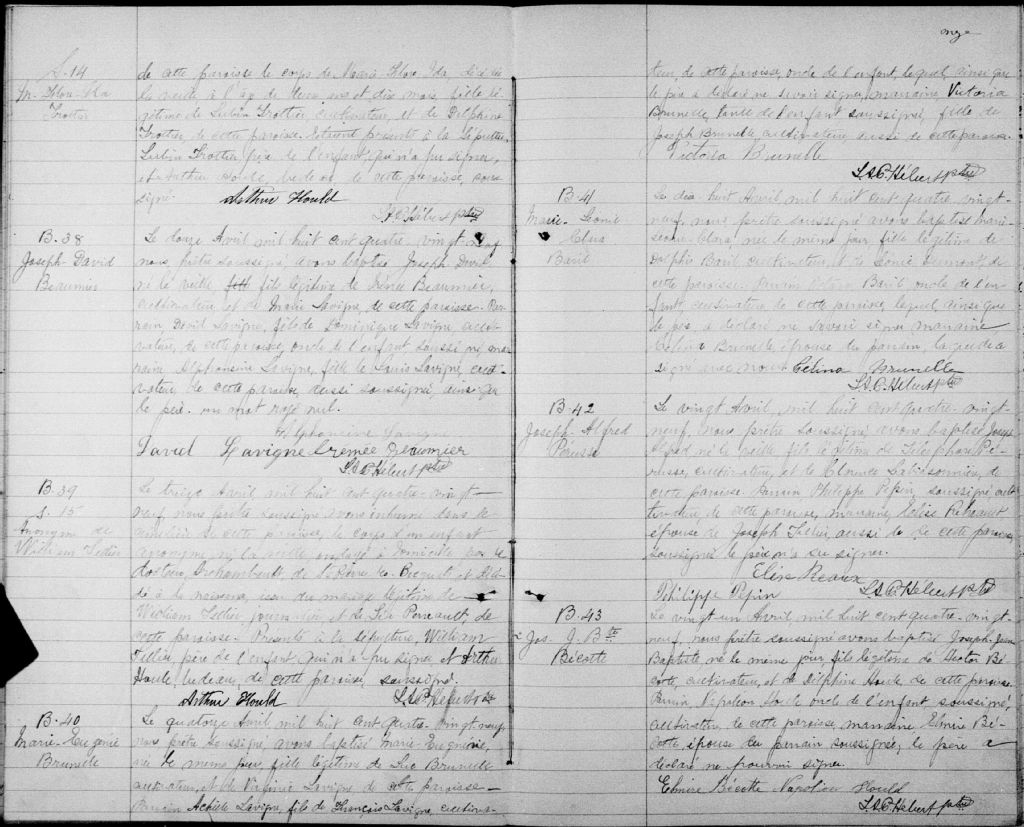 S-14
M-Flore-Ida
Trottier
de cette paroisse le corps de Marie-Flore Ida, décédée
la veille à l'âge de deux ans et dix mois, fille lé-
gitime de Lubin Trottier, cultivateur, et de Delphine
Trottier, de cette paroisse. Etaient présents à la sépulture,
Lubin Trottier père de l'enfant, qui n'a pu signer,
et Arthur Houle, bedeau de cette paroisse, sous-
signé.
Arthur Hould
L.A.P. Hébert ptre
B-38
Joseph-David
Beaumier
Le douze Avril mil huit cent quatre-vingt-neuf
nous, prêtre soussigné, avons baptisé Joseph David
né la veille, fils légitime de Irénée Beaumier,
cultivateur, et de Marie Lavigne, de cette paroisse. Par-
rain, David Lavigne, fils de Dominique Lavigne, culti-
vateur, de cette paroisse, oncle de l'enfant, soussigné, mar-
raine Alphonsine Lavigne, fille de Louis Lavigne, culti-
vateur, de cette paroisse, aussi soussignée, ainsi que
le père. un mot rayé nul.
Alphonsine Lavigne
David Lavigne Irenée Beaumier
L.A.P. Hébert ptre
B-39
S-15
Anonyme de
William Tellier
Le treize Avril mil huit cent quatre-vingt-
neuf nous prêtre soussigné avons inhumé dans le
cimetière de cette paroisse, le corps d'un enfant
anonyme, né la veille ondoyé à domicile par le
docteur, Archambault, de St Pierre les Becquets et
à la naissance, issu du mariage légitime de
William Tellier, journalier, et de Léa Perreault, de
cette paroisse. Présents à la sépulture, William
Tellier, père de l'enfant, qui n'a pu signer, et Arthur
Houle, bedeau, de cette paroisse, soussigné.
Arthur Hould
L.A.P. Hébert ptre
B-40
Marie-Eugenie
Brunelle
Le quatorze Avril mil huit cent quatre-vingt-neuf
nous prêtre soussigné avons baptisé Marie-Eugénie,
née le même jour, fille légitime de Léo Brunelle
cultivateur, et de Virginie Lavigne, de cette paroisse-
Parrain Achille Lavigne, fils de François Lavigne, cultiva-
onze
teur, de cette paroisse, oncle de l'enfant, lequel, ainsi que
le père a déclaré ne savoir signer, marraine Victoria
Brunelle, tante de l'enfant soussignée, fille de
Joseph Brunelle, cultivateur, aussi de cette paroisse.
Victoria Brunelle
L.A.P. Hébert ptre
B-41
Marie-Léonie-
Clara
Baril
Le dix huit Avril mil huit cent quatre-vingt-
neuf, nous prêtre soussigné avons baptisé Marie-
Léonie-Clara, née le même jour, fille légitime de
Delphis Baril cultivateur, et de Léonie de
cette paroisse. Parrain Baril, oncle de l'en-
fant, cultivateur de cette paroisse, lequel ainsi que
le père a déclaré ne savoir signer marraine,
Célina Brunelle, épouse du parrain, laquelle a
signé avec nous. Celina Brunelle
L.A.P. Hébert ptre
B-42
Joseph-Alfred
Pérusse
Le vingt Avril, mil huit cent quatre-vingt-
neuf, nous prêtre soussigné, avons baptisé Joseph
Alfred, né la veille fils légitime de Télesphore Pé-
russe, cultivateur, et de de
cette paroisse. Parrain Philippe Pepin, soussigné, culti-
vateur, de cette paroisse, marraine,
épouse de Joseph Tellier, aussi de cette paroisse,
soussignée le père n'a su signer.
Philippe Pepin L.A.P. Hébert ptre
B-43
Jos. J. Bte
Bécotte
Le vingt-un Avril, mil huit cent quatre-vingt-
neuf, nous prêtre soussigné avons baptisé Joseph-Jean
Baptiste, né le même jour, fils légitime de Hector Bé-
cotte, cultivateur, et de Delphine Houle de cette paroisse.
Parrain, Napoléon Houle oncle de l'enfant soussigné,
cultivateur, de cette paroisse, marraine Elmire Bé-
cotte, épouse du parrain soussignée, le père a
déclaré ne pouvoir signer.
Elmire Bécotte Napoléon Hould
L.A.P. Hébert ptre